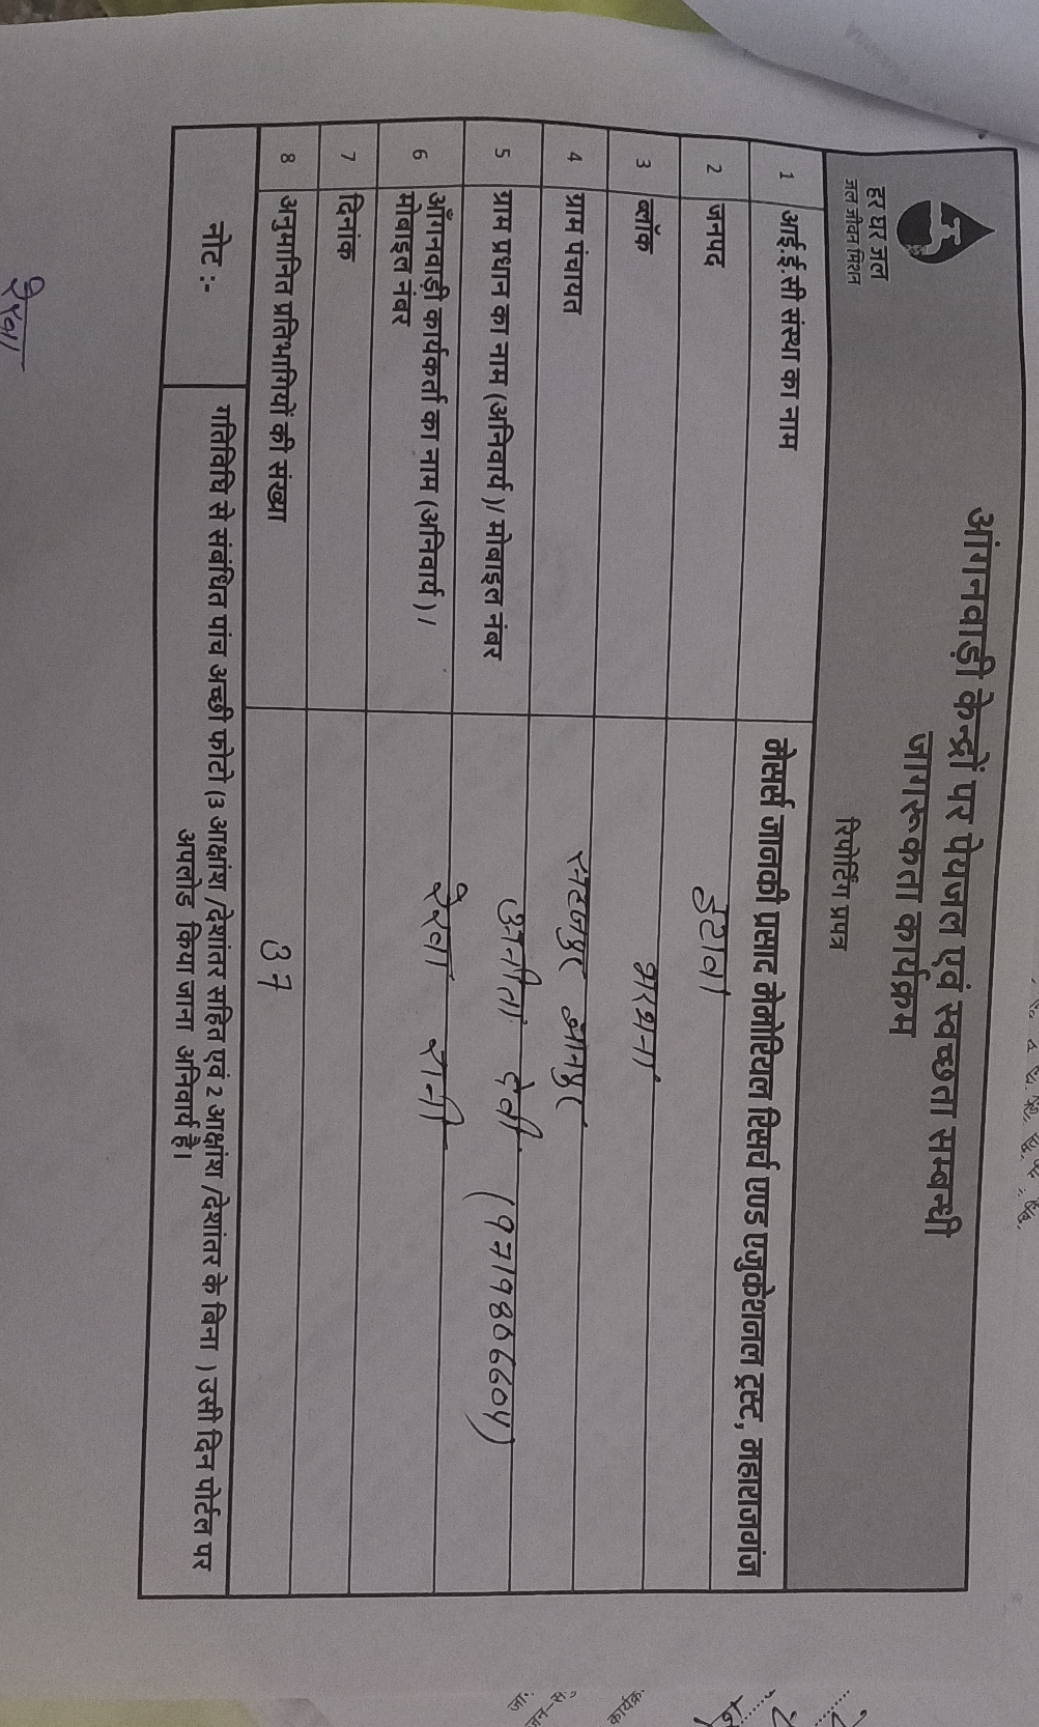 हर घर जल
जल जीवन मिशन
आंगनवाड़ी केन्द्रों पर पेयजल एवं स्वच्छता सम्बन्धी
जागरूकता कार्यक्रम
रिपोर्टिंग प्रपत्र
1 आई.ई.सी संस्था का नाम मेसर्स जानकी प्रसाद मेमोरियल रिसर्च एण्ड एजुकेशनल ट्रस्ट, महाराजगंज
2 जनपद इटावा
3 ब्लॉक भरथना
4 ग्राम पंचायत
5 ग्राम प्रधान का नाम (अनिवार्य)/ मोबाइल नंबर अनीता देवी (9719806604)
6 आँगनवाड़ी कार्यकर्ता का नाम (अनिवार्य)। रेखा रानी
मोबाइल नंबर
7 दिनांक
8 अनुमानित प्रतिभागियों की संख्या 37
नोट :- गतिविधि से संबंधित पांच अच्छी फोटो (3 आक्षांश /देशांतर सहित एवं 2 आक्षांश /देशांतर के बिना ) उसी दिन पोर्टल पर
अपलोड किया जाना अनिवार्य है।
रेखा